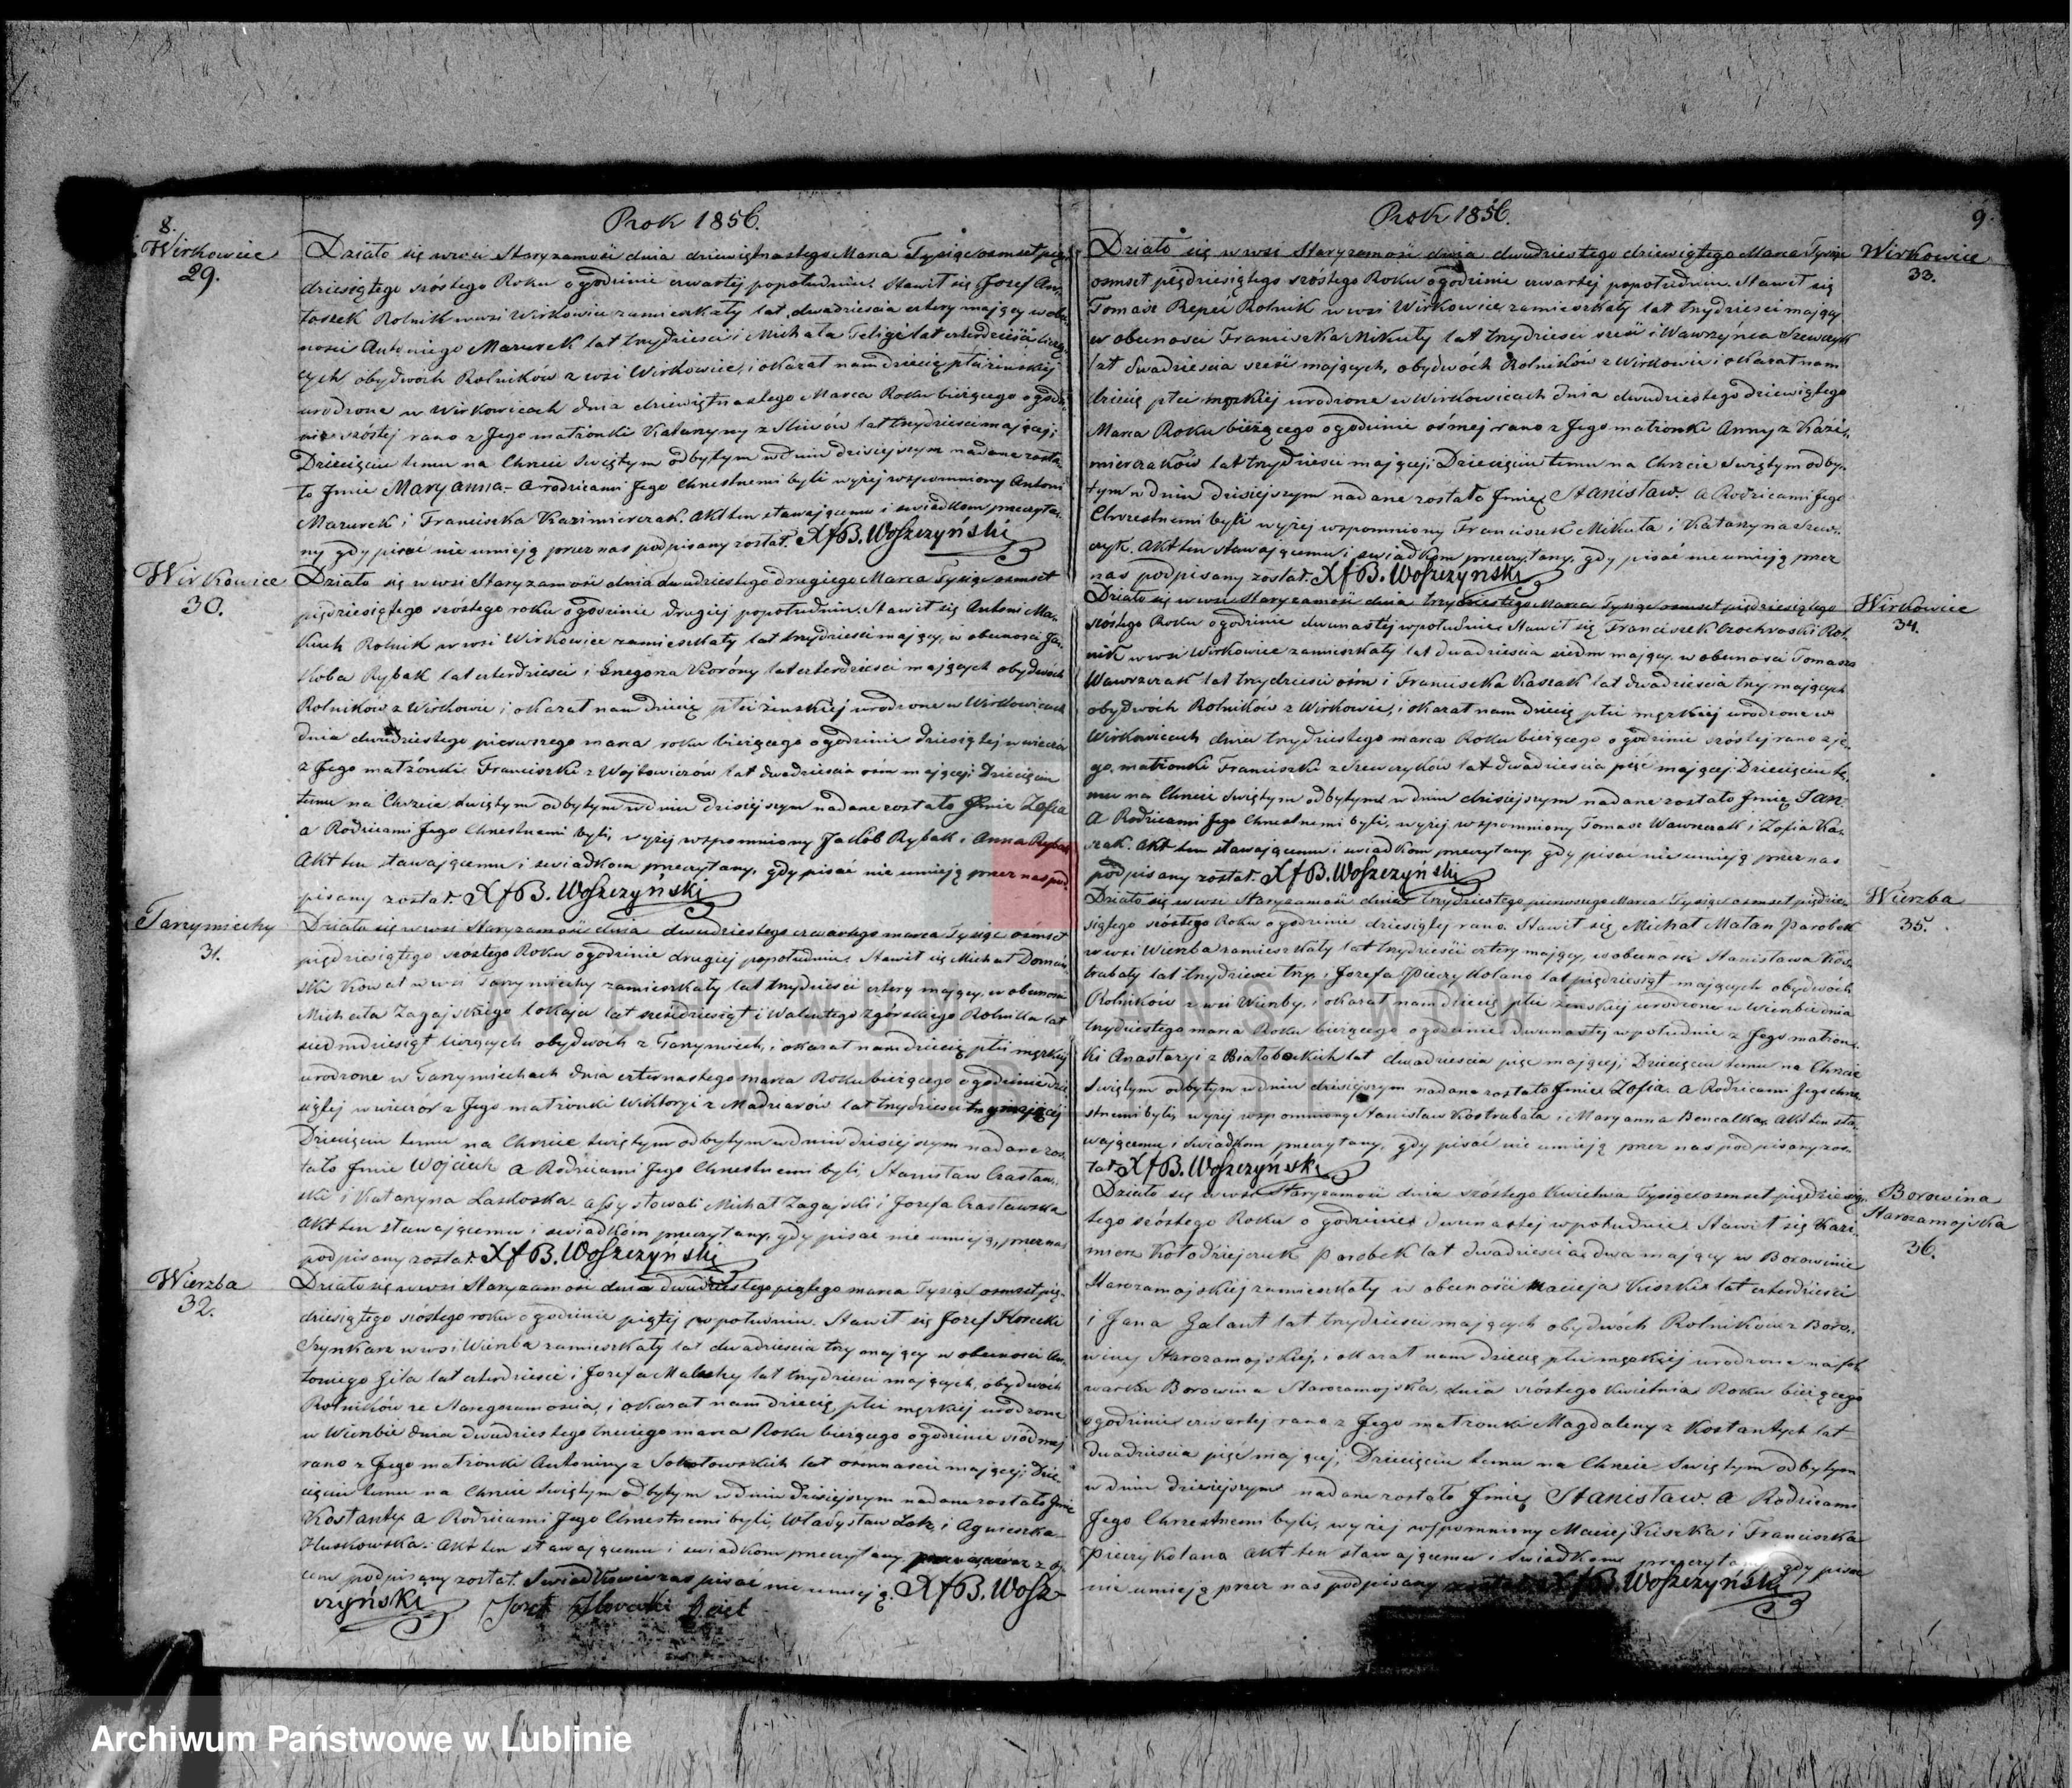 8.
Rok 1856.
Wirkowice
29.
Działo się w wsi Staryzamość dnia dziewiętnastego Marca Tysiąc osmset pięć
dziesiątego szóstego Roku o godzinie czwartej popołudniu. Stawił się Jozef An-
toszek Rolnik w wsi Wirkowice zamieszkały lat dwadzieścia cztery mający w obe-
cnosci Antoniego Mazurek lat trzydzieści i Michała Feligi lat czterdzieści liczą-
cych obydwoch Rolników z wsi Wirkowice, i okazał nam dziecię płci żeńskiej
urodzone w Wirkowicach dnia dziewiętnastego Marca Roku bieżącego o godzi-
nie szóstej rano z Jego małżonki Katarzyny z Sliwów lat trzydzieści mającej;
Dziecięciu temu na Chrzcie Świętym odbytym w dniu dzisiejszym nadane zosta-
ło Jmie Maryanna- a rodzicami Jego Chrzestnemi byli wyżej wspomniony Antoni
Mazurek i Franciszka Kazimierczak. Akt ten stawającemu i swiadkom przeczyta-
ny gdy pisać nie umieją przez nas podpisany został. XfB. Woszczyński
Wirkowice
30.
Działo się w wsi Staryzamość dnia dwudziestego drugiego Marca Tysiąc osmset
pięćdziesiątego szóstego roku o godzinie drugiej popołudniu. Stawił się Antoni Ma-
kuch Rolnik w wsi Wirkowice zamieszkały lat trzydzieści mający, w obecności Ja-
koba Rybak lat czterdzieści i Grzegorza Korony lat czterdzieści mających obydwóch
Rolników z Wirkowic i okazał nam dziecię płci żenskiej urodzone w Wirkowicach
dnia dwudziestego pierwszego marca roku bieżącego o godzinie dziesiątej w wieczór
z Jego małżonki Franciszki z Wojtowiczów lat dwadzieścia ośm mającej; Dziecięciu
temu na Chrzcie świętym odbytym w dniu dzisiejszym nadane zostało Jmie Zofia
a Rodzicami Jego Chrzestnemi byli, wyżej wspomniony Jakób Rybak i Anna Rybak
Akt ten stawającemu i swiadkom przeczytany, gdy pisać nie umieją przez nas pod-
pisany został. XfB. Woszczyński
Tarzymiechy
31.
Działo się w wsi Staryzamość dnia dwudziestego czwartego marca Tysiąc ośmset
pięćdziesiątego szóstego Roku o godzinie drugiej popołudniu. Stawił się Michał Domań-
ski Kowal w wsi Tarzymiechy zamieszkały lat trzydzieści cztery mający, w obecności
Michała Zagajskiego lokaja lat sześćdziesiąt i Walentego Zgórskiego Rolnika lat
siedmdziesiąt liczących obydwoch z Tarzymiech, i okazał nam dziecię płci męzkiej
urodzone w Tarzymiechach dnia czternastego marca Roku bieżącego o godzinie dzie-
siątej w wieczór z Jego małżonki Wiktoryi z Madziarów lat trzydzieści trzy mającej
Dziecięciu temu na Chrzcie świętym odbytym w dniu dzisiejszym nadane zos-
tało Jmie Wojciech a Rodzicami Jego Chrzestnemi byli, Stanisław Czasław-
ski i Katarzyna Laskoska- assystowali Michał Zagajski i Jozefa Czasławska
Akt ten stawającemu i swiadkóm przeczytany, gdy pisać nie umieją, przez nas
podpisany został. XfB. Woszczyński
Wierzba
32.
Działo się w wsi Staryzamość dnia dwudziestego piątego marca Tysiąc osmset pięć-
dziesiątego szóstego roku o godzinie piątej popołudniu. Stawił się Jozef Słorecki
Szynkarz w wsi Wierzba zamieszkały lat dwadzieścia trzy mający w obecności An-
toniego Gila lat czterdzieści i Jozefa Maluchy lat trzydzieści mających, obydwóch
Rolników ze Staregozamościa, i okazał nam dziecię płci męzkiej urodzone
w Wierzbie dnia dwudziestego trzeciego marca Roku bieżącego o godzinie siódmej
rano z Jego małżonki Antoniny z Sokołowskich lat ośmnaście mającej; Dzie-
cięciu temu na Chrzcie Świętym odbytym w dniu dzisiejszym nadane zostało Jmie
Kostanty a Rodzicami Jego Chrzestnemi byli, Władysław Lok i Agnieszka
Huskowska. Akt ten stawającemu i swiadkom przeczytany z oj-
cem podpisany został. Swiadkowie zas pisać nie umieją. XfB. Wosz-
czyński Jozef Słorecki Ojciec
Rok 1856.
9.
Wirkowice
33.
Działo się w wsi Staryzamość dnia dwudziestego dziewiątego Marca Tysiąc
osmset pięćdziesiątego szóstego Roku o godzinie czwartej popołudniu. Stawił się
Tomasz Repeć Rolnik w wsi Wirkowice zamieszkały lat trzydzieści mający
w obecności Franciszka Mikuły lat trzydzieści sześć i Wawrzyńca Szewczyk
lat dwadzieścia sześć mających, obydwóch Rolników z Wirkowic i okazał nam
dziecię płci męzkiej urodzone w Wirkowicach dnia dwudziestego dziewiątego
Marca Roku bieżącego o godzinie ósmej rano z Jego małżonki Anny z Kazi-
mierczaków lat trzydzieści mającej; Dziecięciu temu na Chrzcie Swiętym odby-
tym w dniu dzisiejszym nadane zostało Jmię Stanisław. a Rodzicami Jego
Chrzestnemi byli wyżej wspomniony Franciszek Mikuła i Katarzyna Szew-
czyk. Akt ten stawającemu i swiadkom przeczytany, gdy pisać nie umieją przez
nas podpisany został. XfB. Woszczyński
Wirkowice
34.
Działo się w wsi Staryzamość dnia trzydziestego Marca Tysiąc osmset pięćdziesiątego
szóstego Roku o godzinie dwunastej w południe Stawił się Franciszek Czochroski Rol-
nik w wsi Wirkowice zamieszkały lat dwadzieścia siedm mający, w obecności Tomasza
Wawrzczak lat trzydzieści ośm i Franciszka Kaszak lat dwadzieścia trzy mających
obydwóch Rolników z Wirkowic, i okazał nam dziecię płci męzkiej urodzone w
Wirkowicach dnia trzydziestego marca Roku bieżącego o godzinie szóstej rano z Je-
go małżonki Franciszki z Szewczyków lat dwadzieścia pięć mającej. Dziecięciu te-
mu na Chrzcie Świętym odbytym w dniu dzisiejszym nadane zostało Jmię Jan-
a Rodzicami Jego Chrzestnemi byli, wyżej wspomniony Tomasz Wawrzczak i Zofia Ka-
szak. Akt ten stawającemu i swiadkom przeczytany, gdy pisać nie umieją przez nas
podpisany został. XfB. Woszczyński
Wierzba
35.
Działo się w wsi Staryzamość dnia trzydziestego pierwszego Marca Tysiąc osmset pięćdzie-
siątego szóstego Roku o godzinie dziesiątej rano. Stawił się Michał Małan Parobek
w wsi Wierzba zamieszkały lat trzydzieści cztery mający, w obecności Stanisława Kos-
trubały lat trzydzieści trzy i Jozefa Pieczykolana lat pięćdziesiąt mających obydwoch
Rolników z wsi Wierzby, i okazał nam dziecię płci żenskiej urodzone w Wierzbie dnia
trzydziestego marca Roku bieżącego o godzinie dwunastej w południe z Jego małżon-
ki Anastazyi z Białobockich lat dwadzieścia pięć mającej; Dziecięciu temu na Chrzcie
Świętym odbytym w dniu dzisiejszym nadane zostało Jmie Zofia. a Rodzicami Jego Chrze-
stnemi byli, wyżej wspomniony Stanisław Kostrubała i Maryanna Boncalka. Akt ten sta-
wającemu i swiadkom przeczytany, gdy pisać nie umieją przez nas podpisany zos-
tał. XfB. Woszczyński
Borowina
Starozamojska
36.
Działo się w wsi Staryzamość dnia szóstego Kwietnia Tysiąc osmset pięćdziesią-
tego szóstego Roku o godzinie dwunastej w południe Stawił się Kazi-
mierz Kołodziejczuk Parobek lat dwadzieścia dwa mający w Borowinie
Starozamojskiej zamieszkały w obecności Macieja Kiszki lat czterdzieści
i Jana Galant lat trzydzieści mających obydwóch Rolników z Boro-
winy Starozamojskiej, i okazał nam dziecię płci męzkiej urodzone na fol-
warku Borowina Starozamojska, dnia szóstego Kwietnia Roku bieżącego
o godzinie czwartej rano z Jego małżonki Magdaleny z Kostantych lat
dwadzieścia pięć mającej; Dziecięciu temu na Chrzcie Świętym odbytym
w dniu dzisiejszym nadane zostało Jmię Stanisław. a Rodzicami
Jego Chrzestnemi byli, wyżej wspomniony Maciej Kiszka i Franciszka
Pieczykolana Akt ten stawającemu i Swiadkom przeczytany gdy pisać
nie umieją przez nas podpisany został XfB. Woszczyński
ARCHIWUM PAŃSTWOWE
W LUBLINIE
Archiwum Państwowe w Lublinie